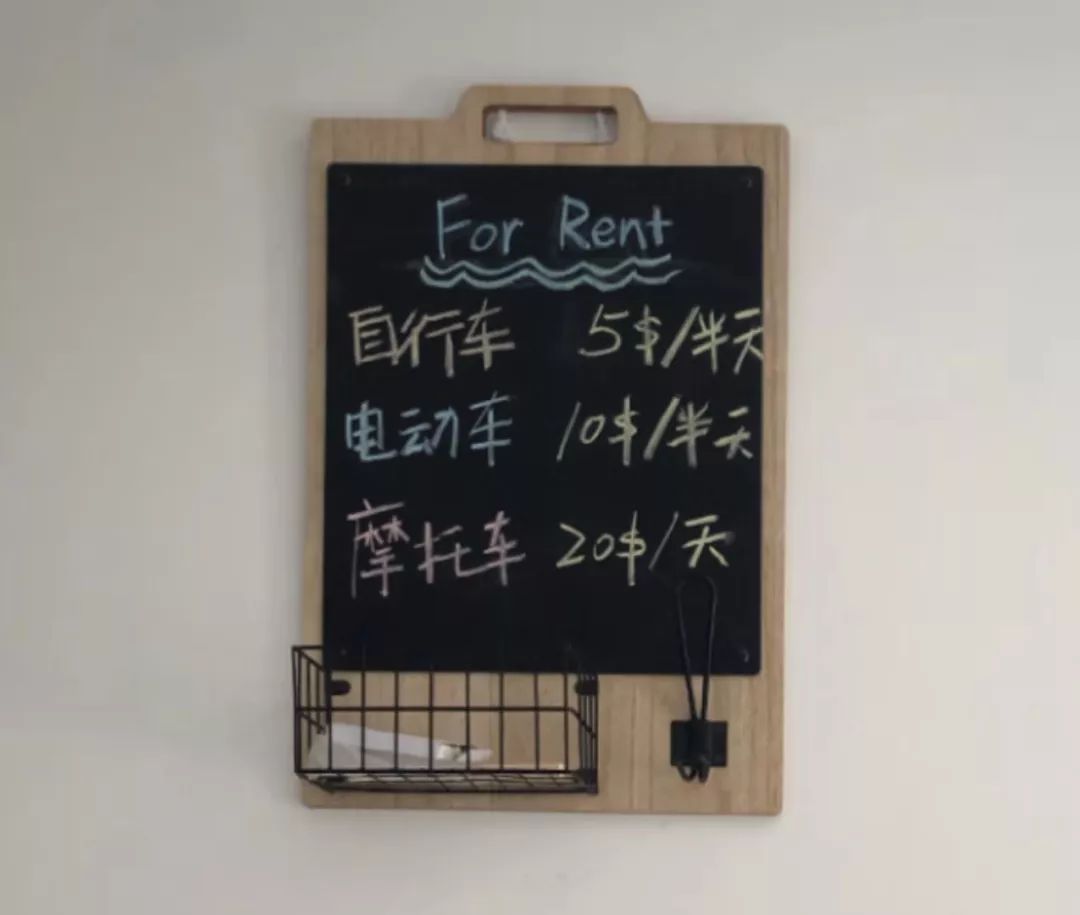 For Rent
自行车 5$/半天
电动车 10$/半天
摩托车 20$/天